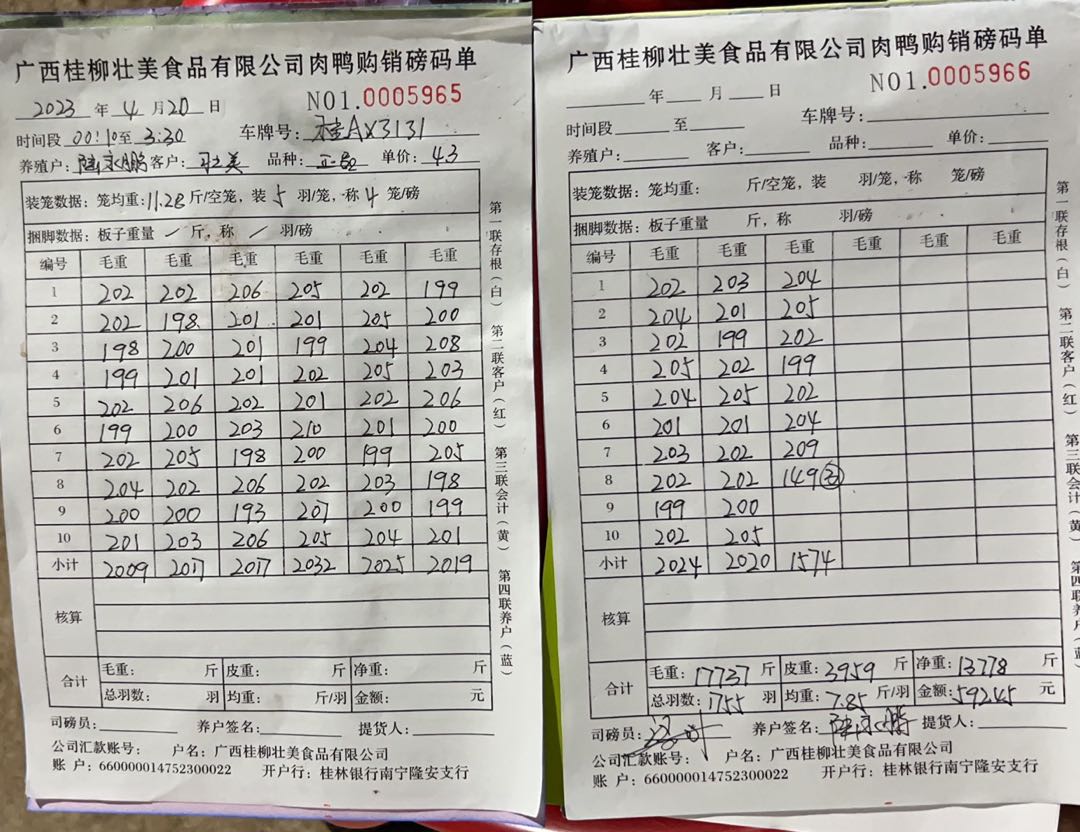 广西桂柳壮美食品有限公司肉鸭购销磅码单
2023 年 4 月 20 日 NO1.0005965
时间段 00:10 至 3:30 车牌号: 桂AX3131
养殖户: 陆永鹏 客户: 壮美 品种: 单价: 43
装笼数据: 笼均重: 11.28 斤/空笼, 装 5 羽/笼, 称 4 笼/磅
捆脚数据: 板子重量 / 斤, 称 / 羽/磅
编号 毛重 毛重 毛重 毛重 毛重 毛重
1 202 202 206 205 202 199
2 202 198 201 201 205 200
3 198 200 201 199 204 208
4 199 201 201 202 205 203
5 202 206 202 201 202 206
6 199 200 203 210 201 200
7 202 205 198 200 199 205
8 204 202 206 202 203 198
9 200 200 193 207 200 199
10 201 203 206 205 204 201
小计 2009 2017 2017 2032 2025 2019
核算
合计 毛重: 斤 皮重: 斤 净重: 斤
总羽数: 羽 均重: 斤/羽 金额: 元
司磅员: 养户签名: 提货人:
公司汇款账号: 户名: 广西桂柳壮美食品有限公司
账 户: 660000014752300022 开户行: 桂林银行南宁隆安支行
第一联存根(白) 第二联客户(红) 第三联会计(黄) 第四联养户(蓝)
广西桂柳壮美食品有限公司肉鸭购销磅码单
年 月 日 NO1.0005966
时间段 至 车牌号:
养殖户: 客户: 品种: 单价:
装笼数据: 笼均重: 斤/空笼, 装 羽/笼, 称 笼/磅
捆脚数据: 板子重量 斤, 称 羽/磅
编号 毛重 毛重 毛重 毛重 毛重 毛重
1 202 203 204
2 204 201 205
3 202 199 202
4 205 202 199
5 204 205 202
6 201 201 204
7 203 202 209
8 202 202 149 ③
9 199 200
10 202 205
小计 2024 2020 1574
核算
合计 毛重: 17737 斤 皮重: 3959 斤 净重: 13778 斤
总羽数: 1755 羽 均重: 7.85 斤/羽 金额: 59245 元
司磅员: 养户签名: 陆永鹏 提货人:
公司汇款账号: 户名: 广西桂柳壮美食品有限公司
账 户: 660000014752300022 开户行: 桂林银行南宁隆安支行
第一联存根(白) 第二联客户(红) 第三联会计(黄) 第四联养户(蓝)